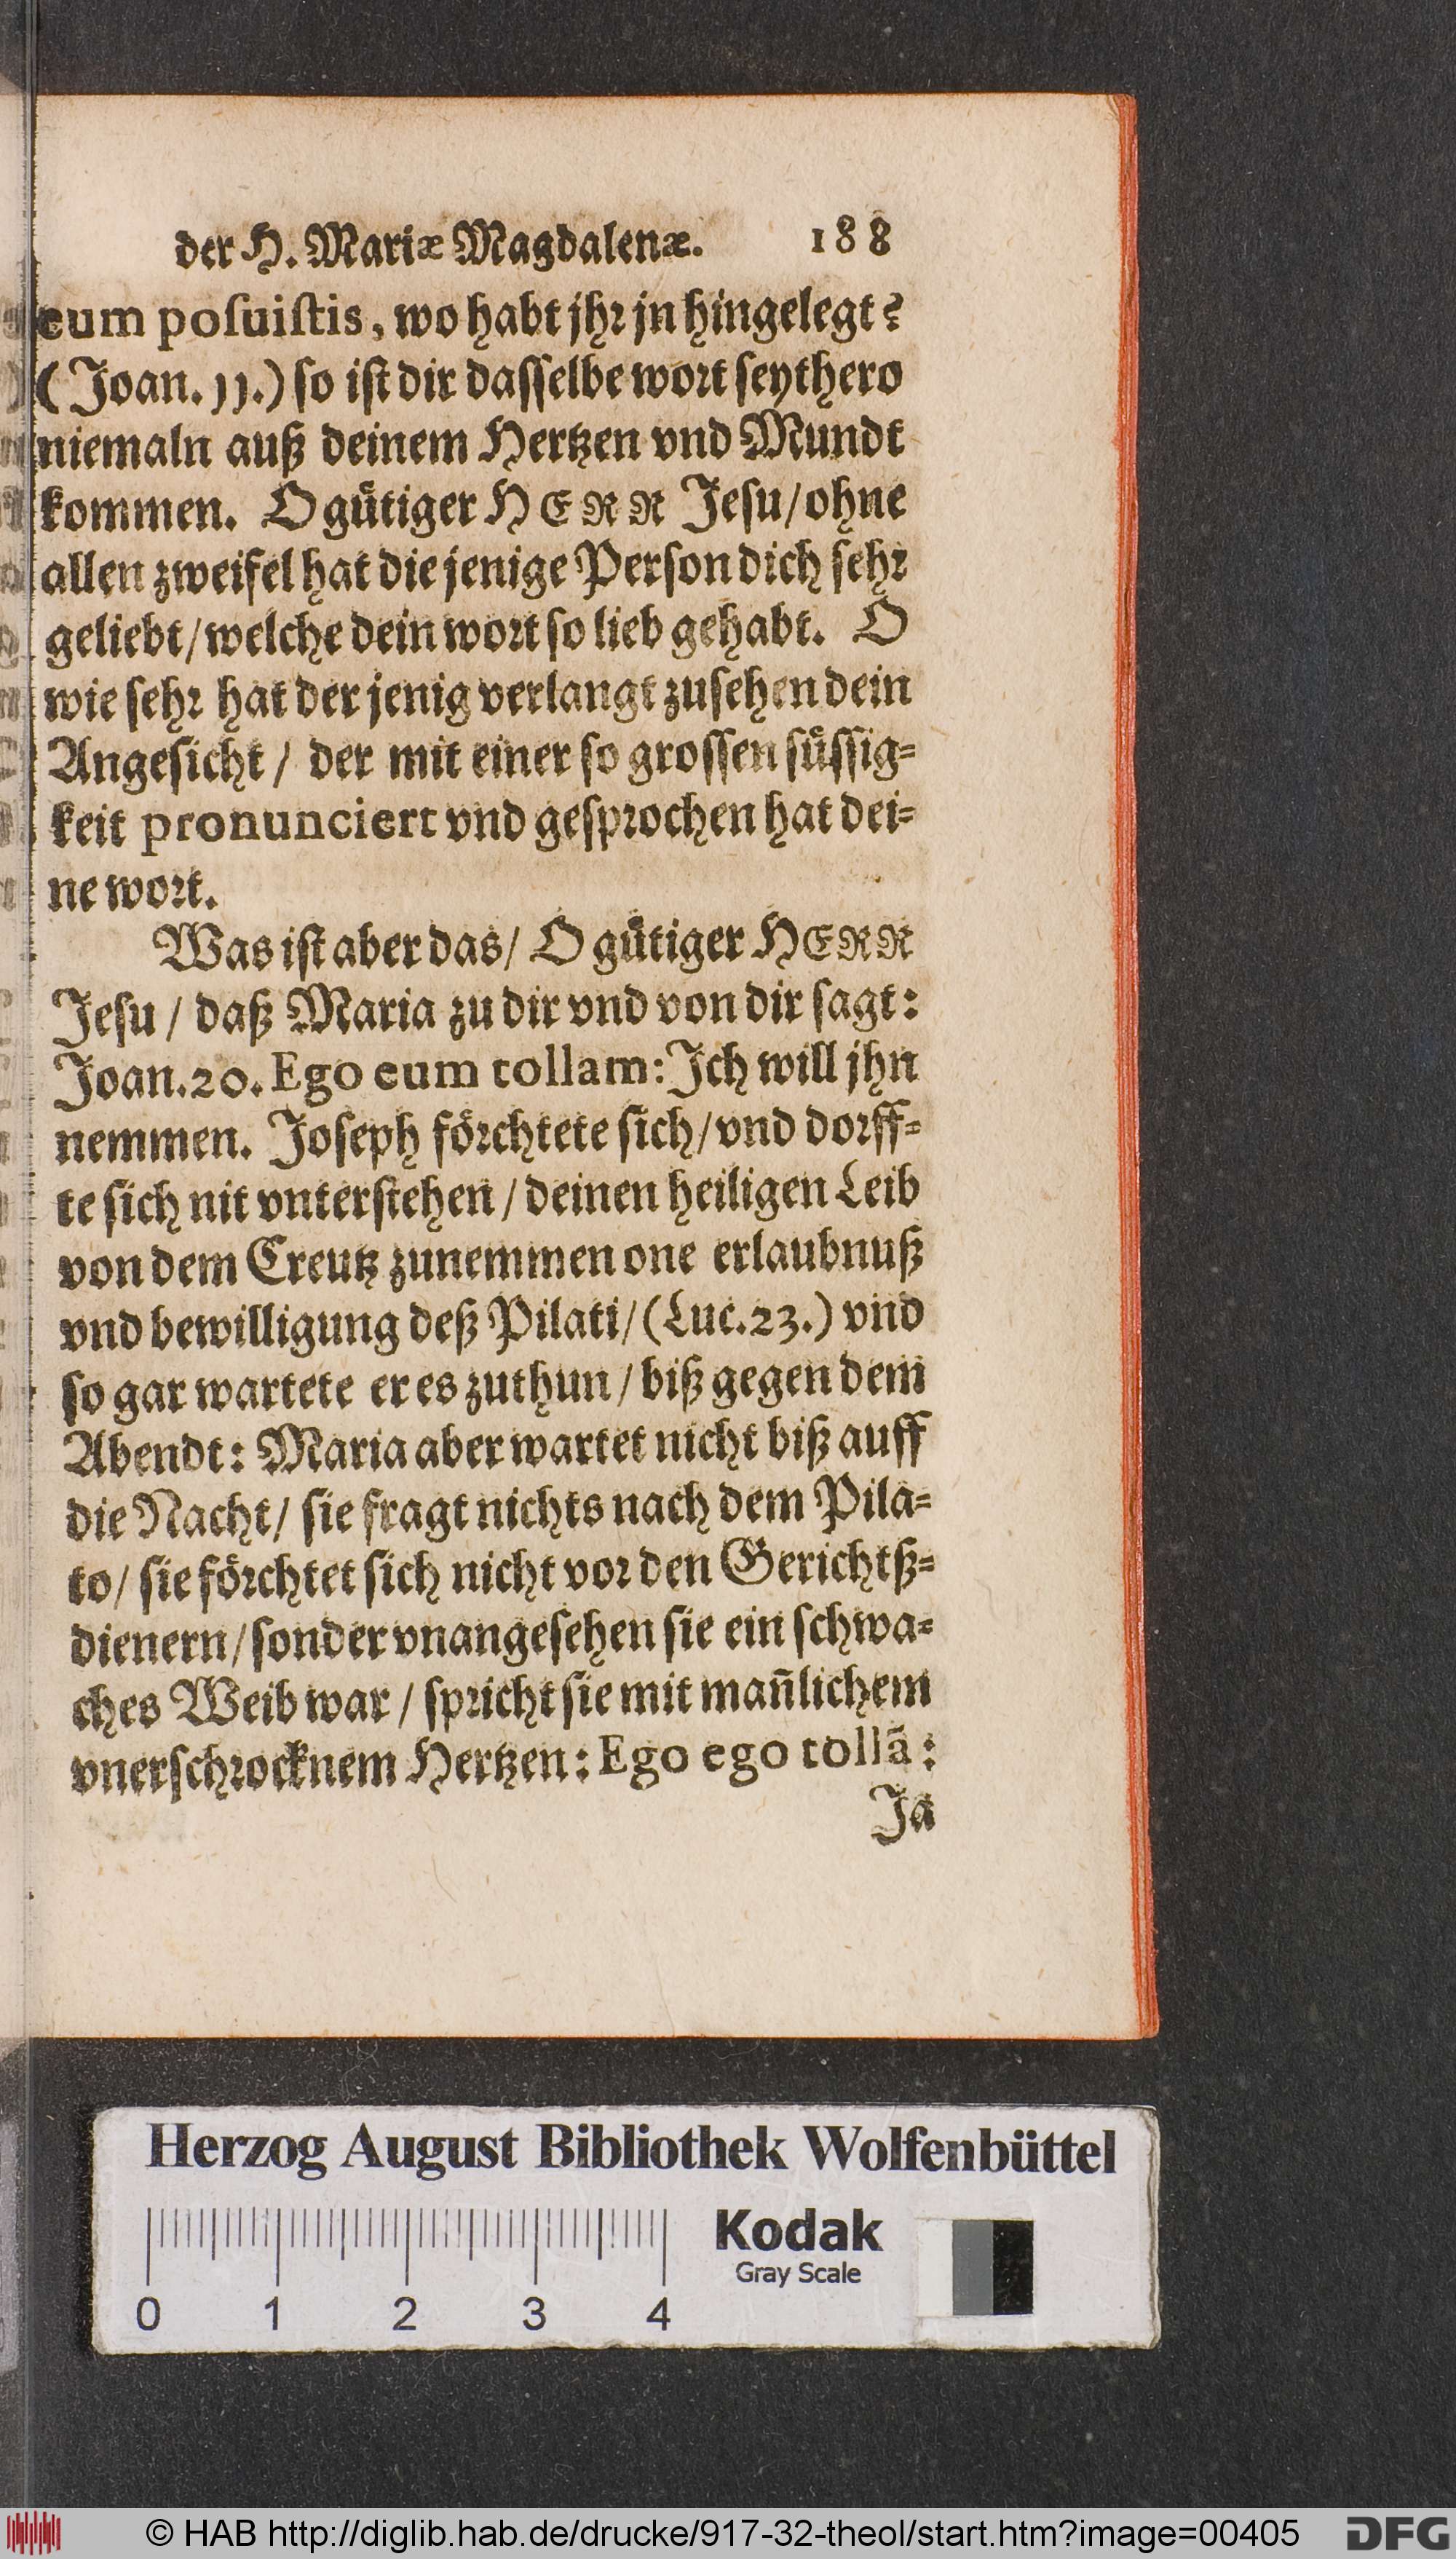 der H. Mariæ Magdalenæ. 188
eum poſuiſtis, wo habt jhr jn hingelegt?
(Joan. 11.) ſo iſt dir daſſelbe wort ſeythero
niemaln auß deinem Hertzen vnd Mundt
kommen. O guͤtiger HERR Jeſu/ ohne
allen zweifel hat die jenige Perſon dich ſehr
geliebt/ welche dein wort ſo lieb gehabt. O
wie ſehr hat der jenig verlangt zuſehen dein
Angeſicht/ der mit einer ſo groſſen ſuͤſſig-
keit pronunciert vnd geſprochen hat dei-
ne wort.
Was iſt aber das/ O guͤtiger HERR
Jeſu/ daß Maria zu dir vnd von dir ſagt:
Joan. 20. Ego eum tollam: Ich will jhn
nemmen. Joſeph foͤrchtete ſich/ vnd dorff-
te ſich nit vnterſtehen/ deinen heiligen Leib
von dem Creutz zunemmen one erlaubnuß
vnd bewilligung deß Pilati/ (Luc. 23.) vnd
ſo gar wartete er es zuthun/ biß gegen dem
Abendt: Maria aber wartet nicht biß auff
die Nacht/ ſie fragt nichts nach dem Pila-
to/ ſie foͤrchtet ſich nicht vor den Gerichtß-
dienern/ ſonder vnangeſehen ſie ein ſchwa-
ches Weib war/ ſpricht ſie mit man̄lichem
vnerſchrocknem Hertzen: Ego ego tollã:
Ja
Herzog August Bibliothek Wolfenbüttel
Kodak
Gray Scale
0 1 2 3 4
© HAB http://diglib.hab.de/drucke/917-32-theol/start.htm?image=00405
DFG